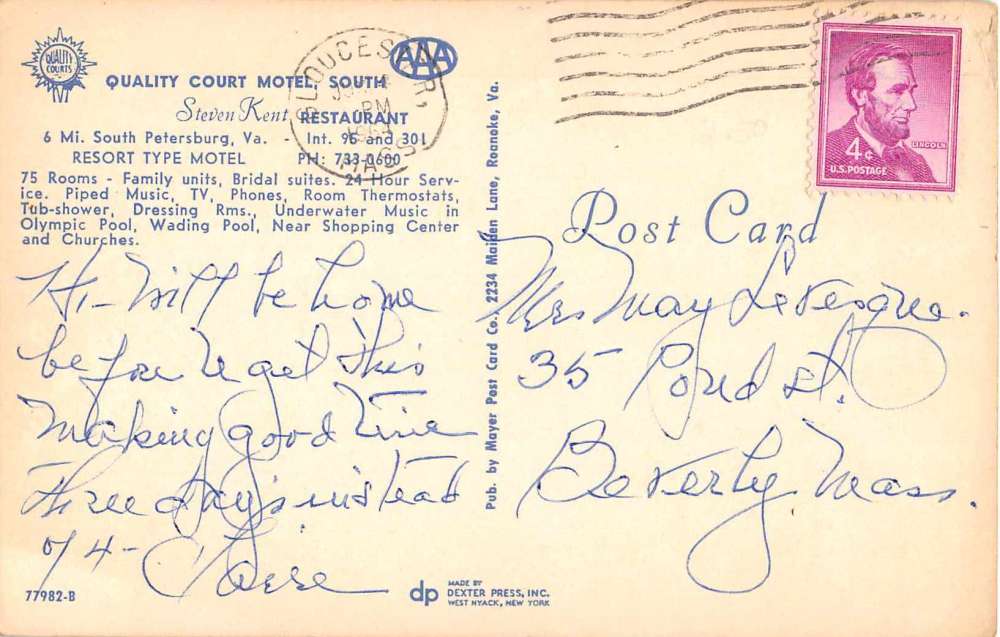 QUALITY COURTS
AAA
QUALITY COURT MOTEL SOUTH
Steven Kent RESTAURANT
6 Mi. South Petersburg, Va. - Int. 95 and 301
RESORT TYPE MOTEL PH: 733-0600
75 Rooms - Family units, Bridal suites. 24 Hour Serv-
ice. Piped Music, TV, Phones, Room Thermostats,
Tub-shower, Dressing Rms., Underwater Music in
Olympic Pool, Wading Pool, Near Shopping Center
and Churches.
Hi - Will be home
before U get this
Making good time
Three day's instead
of 4 -
77982-B
Pub. by Mayer Post Card Co., 2234 Maiden Lane, Roanoke, Va.
GLOUCESTER,
PM
MASS
LINCOLN
4¢
U.S. POSTAGE
Post Card
Mrs May Levesque.
35 Pond st.
Beverly Mass.
dp
MADE BY
DEXTER PRESS, INC.
WEST NYACK, NEW YORK